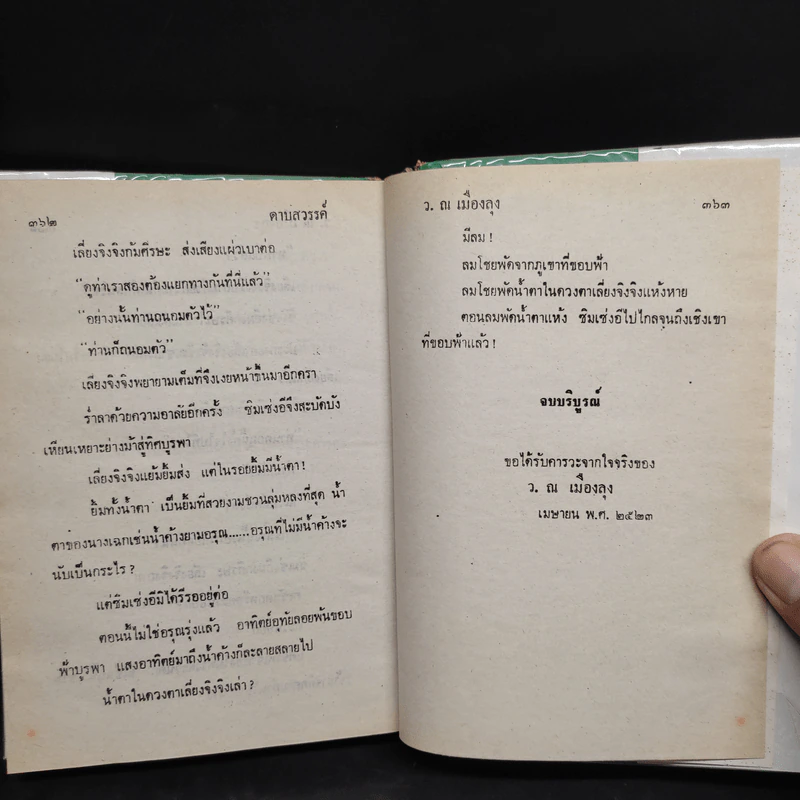 ๓๖๒ ดาบสวรรค์
เลี่ยงจิงจิงก้มศีรษะ ส่งเสียงแผ่วเบาต่อ
“ดูท่าเราสองต้องแยกทางกันที่นี่แล้ว”
“อย่างนั้นท่านถนอมตัวไว้”
“ท่านก็ถนอมตัว”
เลี่ยงจิงจิงพยายามเต็มที่จึงเงยหน้าขึ้นมาอีกครา
ร่ำลาด้วยความอาลัยอีกครั้ง ซิมเซ่งอีจึงสะบัดบัง
เหียนเหยาะย่างม้าสู่ทิศบูรพา
เลี่ยงจิงจิงแย้มยิ้มส่ง แต่ในรอยยิ้มมีน้ำตา!
ยิ้มทั้งน้ำตา เป็นยิ้มที่สวยงามชวนลุ่มหลงที่สุด น้ำ
ตาของนางเฉกเช่นน้ำค้างยามอรุณ......อรุณที่ไม่มีน้ำค้างจะ
นับเป็นกระไร?
แต่ซิมเซ่งอีมิได้รีรออยู่ต่อ
ตอนนี้ไม่ใช่อรุณรุ่งแล้ว อาทิตย์อุทัยลอยพ้นขอบ
ฟ้าบูรพา แสงอาทิตย์มาถึงน้ำค้างก็ละลายสลายไป
น้ำตาในดวงตาเลี่ยงจิงจิงเล่า?
ว. ณ เมืองลุง ๓๖๓
มีลม!
ลมโชยพัดจากภูเขาที่ขอบฟ้า
ลมโชยพัดน้ำตาในดวงตาเลี่ยงจิงจิงแห้งหาย
ตอนลมพัดน้ำตาแห้ง ซิมเซ่งอีไปไกลจนถึงเชิงเขา
ที่ขอบฟ้าแล้ว!
จบบริบูรณ์
ขอได้รับคารวะจากใจจริงของ
ว. ณ เมืองลุง
เมษายน พ.ศ. ๒๕๒๓